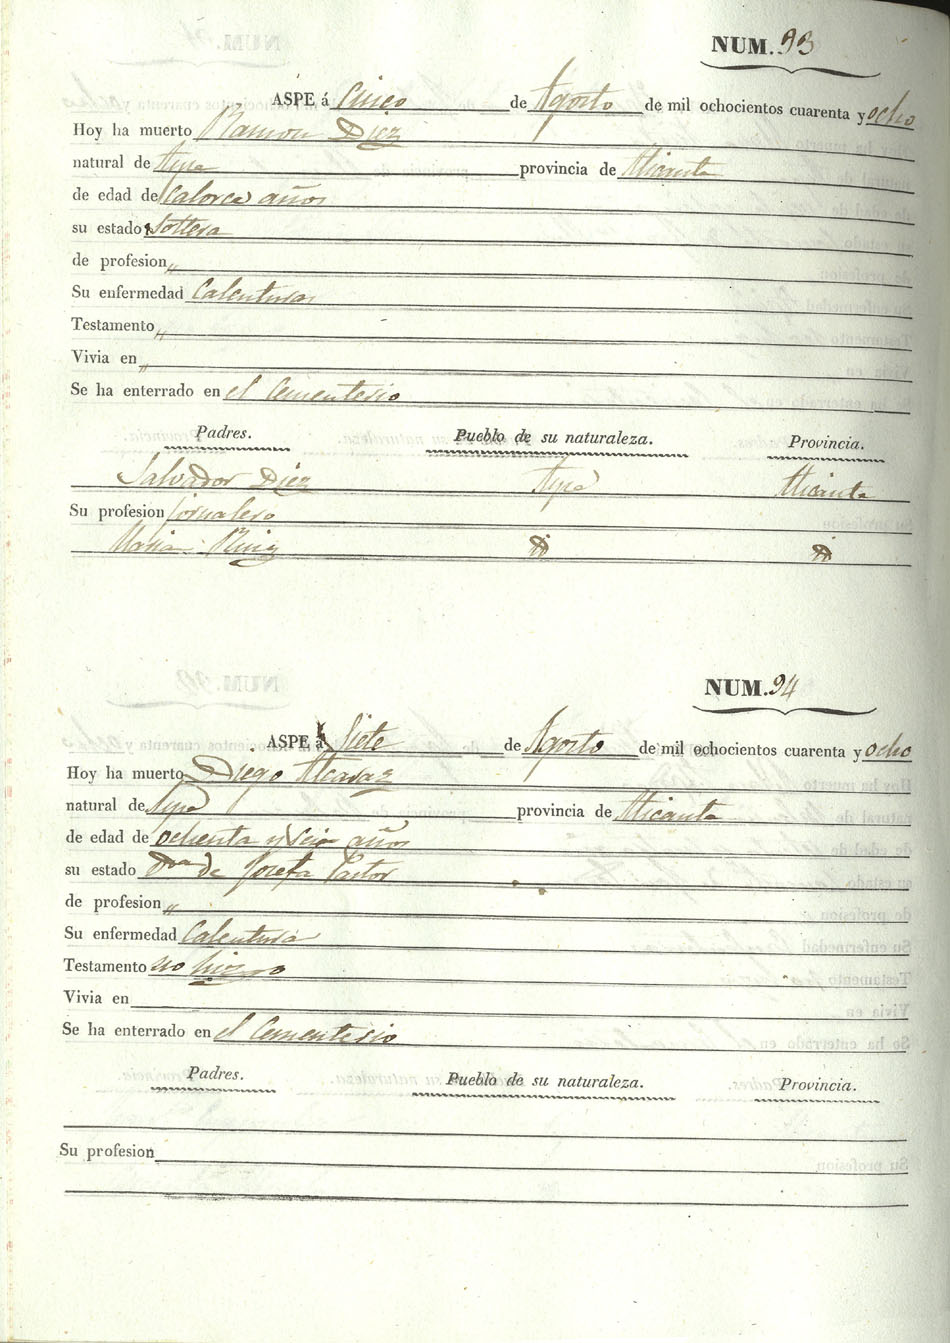 NUM. 93
ASPE á Cinco de Agosto de mil ochocientos cuarenta y ocho
Hoy ha muerto Ramon Diez
natural de Aspe provincia de Alicante
de edad de Catorce años
su estado Soltero
de profesion „
Su enfermedad Calenturas
Testamento „
Vivia en „
Se ha enterrado en el Cementerio
Padres. Pueblo de su naturaleza. Provincia.
Salvador Diez Aspe Alicante
Su profesion jornalero
Maria Ruiz
NUM. 94
ASPE á Siete de Agosto de mil ochocientos cuarenta y ocho
Hoy ha muerto Diego Alcaraz
natural de Aspe provincia de Alicante
de edad de ochenta y seis años
su estado de Josefa Pastor
de profesion „
Su enfermedad Calentura
Testamento no hizo
Vivia en
Se ha enterrado en el Cementerio
Padres. Pueblo de su naturaleza. Provincia.
Su profesion